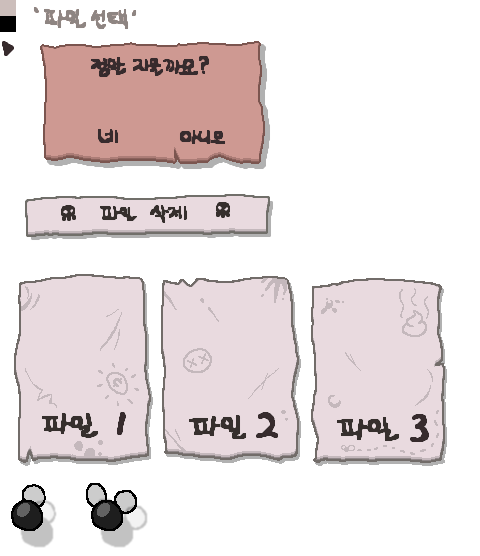 '파일 선택'
정말 지울까요?
네 아니오
파일 삭제
파일 1
파일 2
파일 3